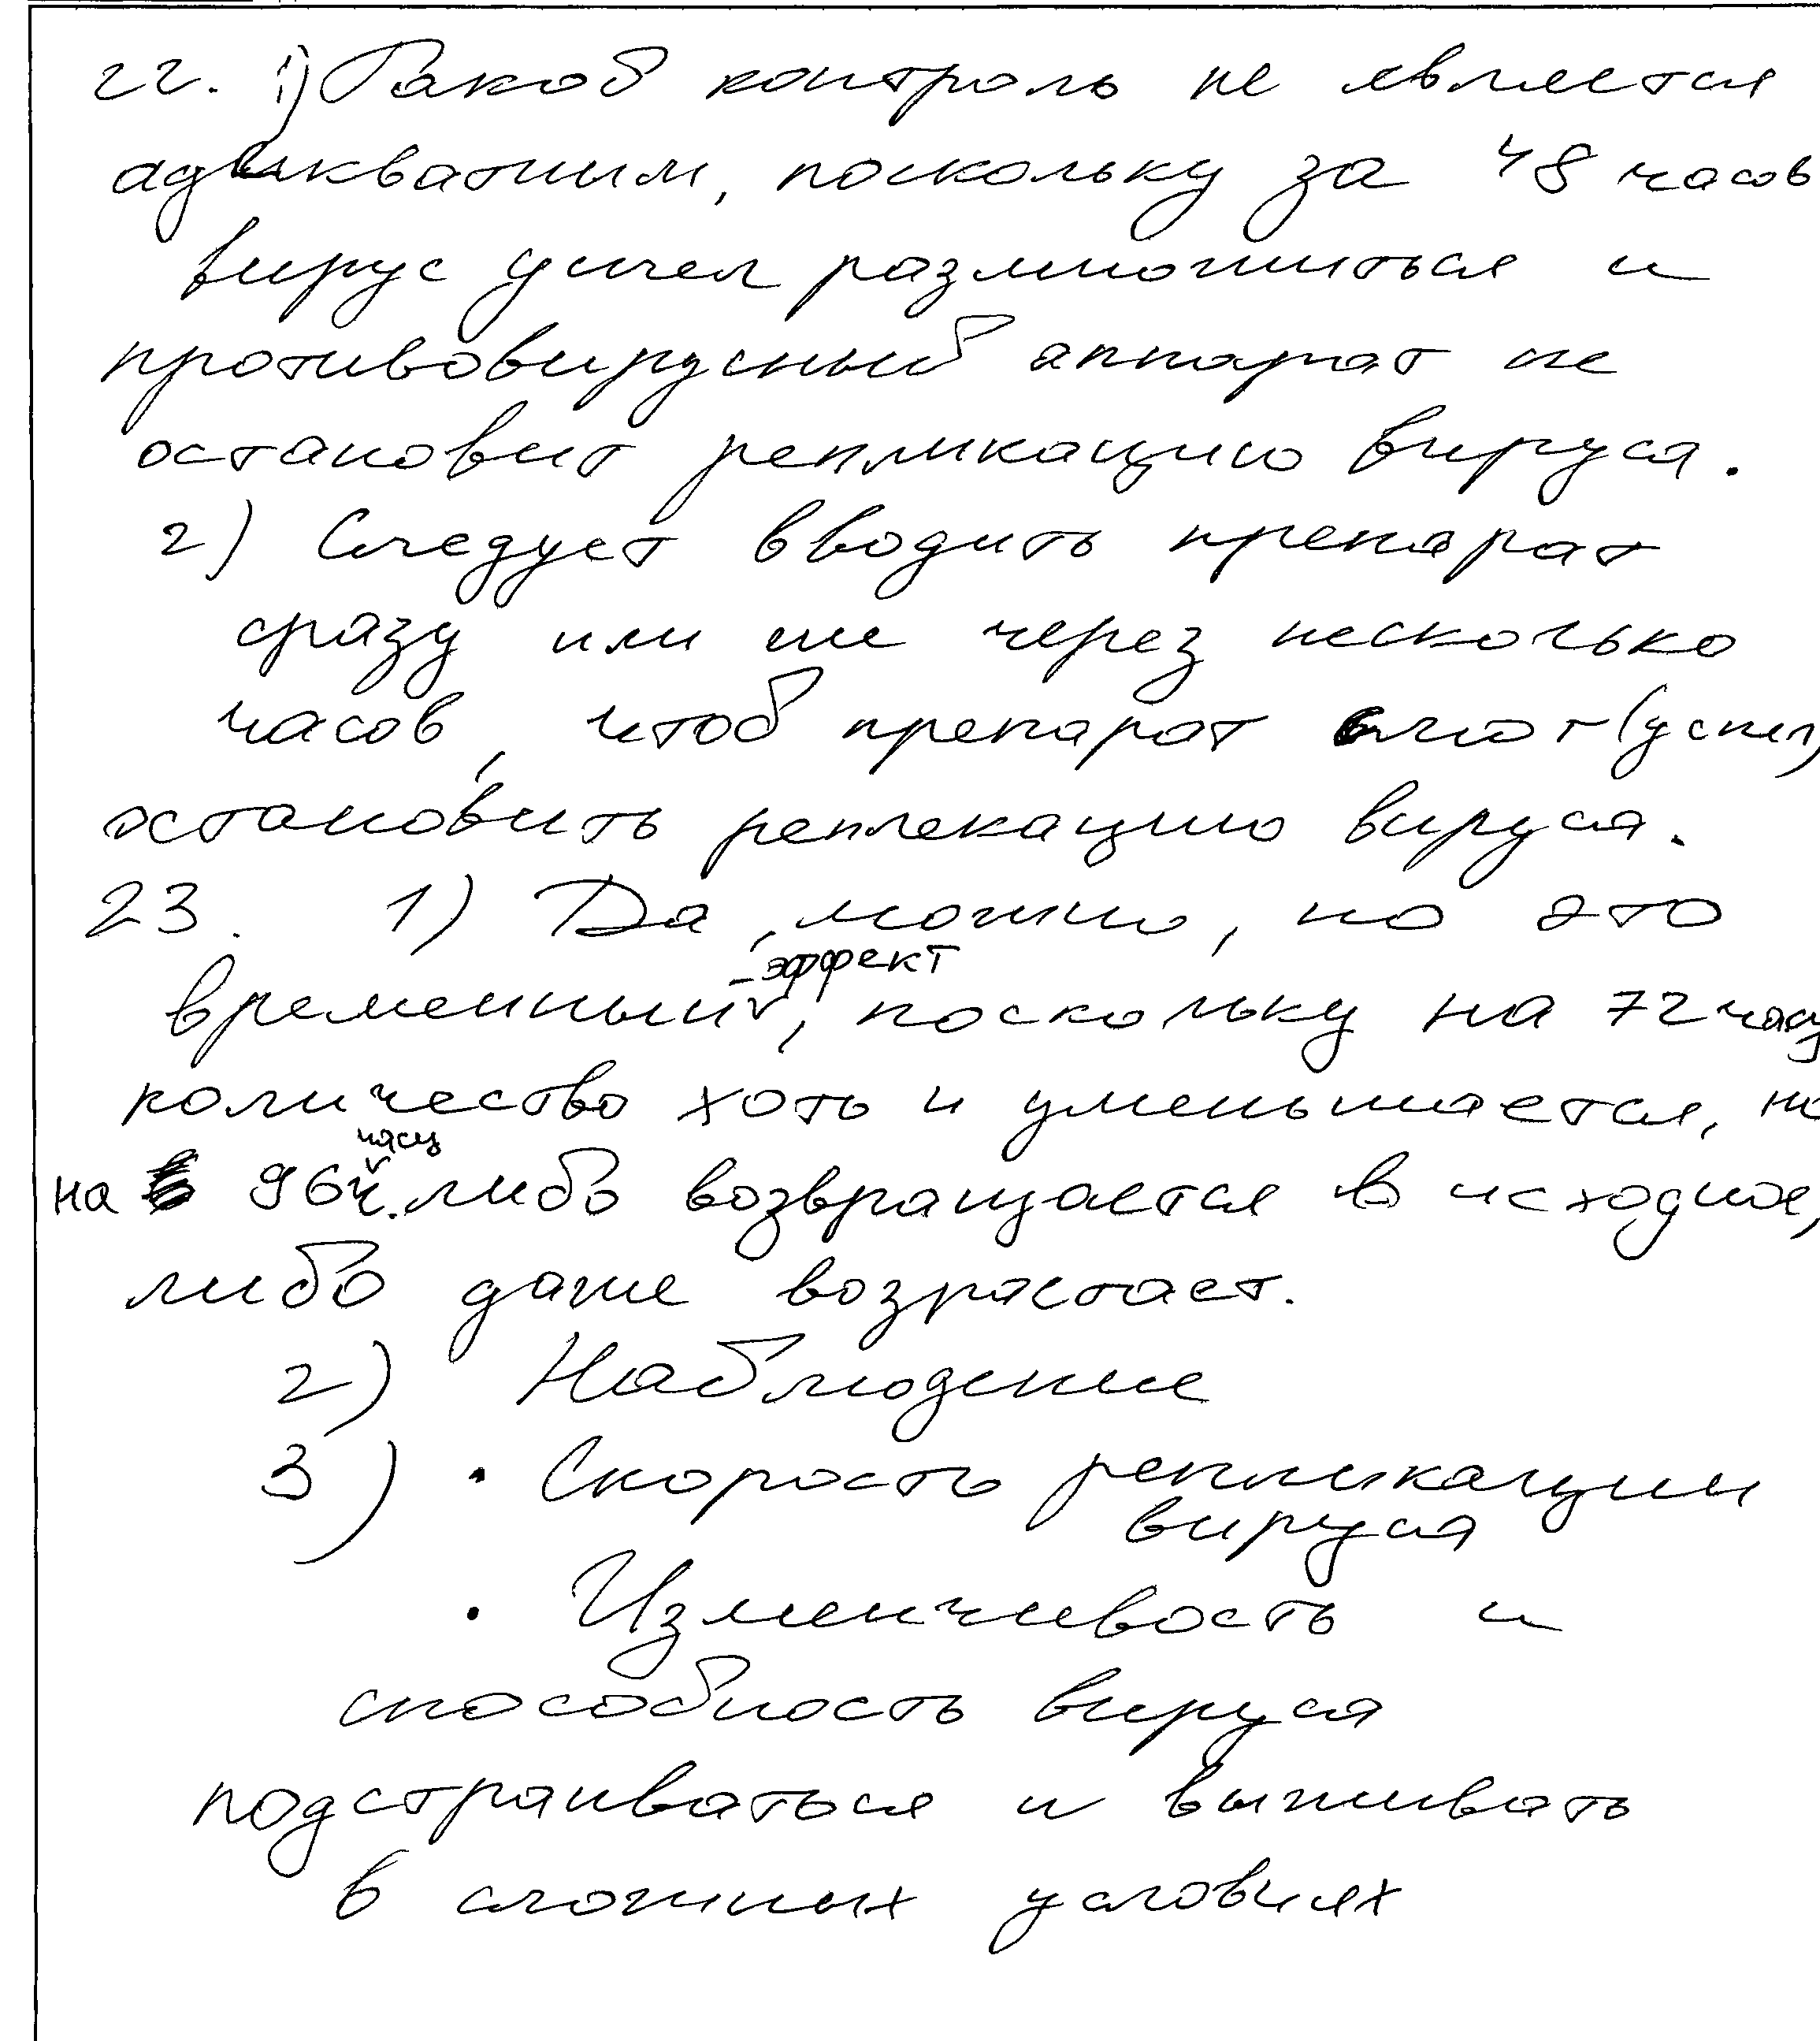 22. 1) Такой контроль не является
адекватным, поскольку за 48 часов
вирус успел размножиться и
противовирусный аппарат не
остановит репликацию вируса.
2) Следует вводить препарат
сразу или же через несколько
часов, чтоб препарат смог (успел)
остановить реплекацию вируса.
23. 1) Да, можно, но это
временный - эффект, поскольку на 72 часу
количество хоть и уменьшается, но
на 96 часу либо возвращается в исходное,
либо даже возрастает.
2) Наблюдение
3) • Скорость репликации
вируса
• Изменчивость и
способность вируса
подстраиваться и выживать
в сложных условиях